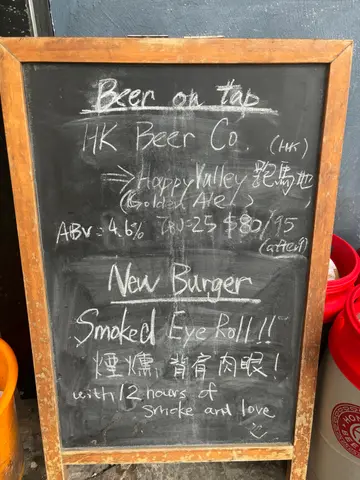 Beer on tap
HK Beer Co. (HK)
⇒ Happy Valley 跑馬地
(Golden Ale)
ABV=4.6% IBU=25 $80/95
(after 9)
New Burger
Smoked Eye Roll!!
煙燻 背肩肉眼!
with 12 hours of
smoke and love